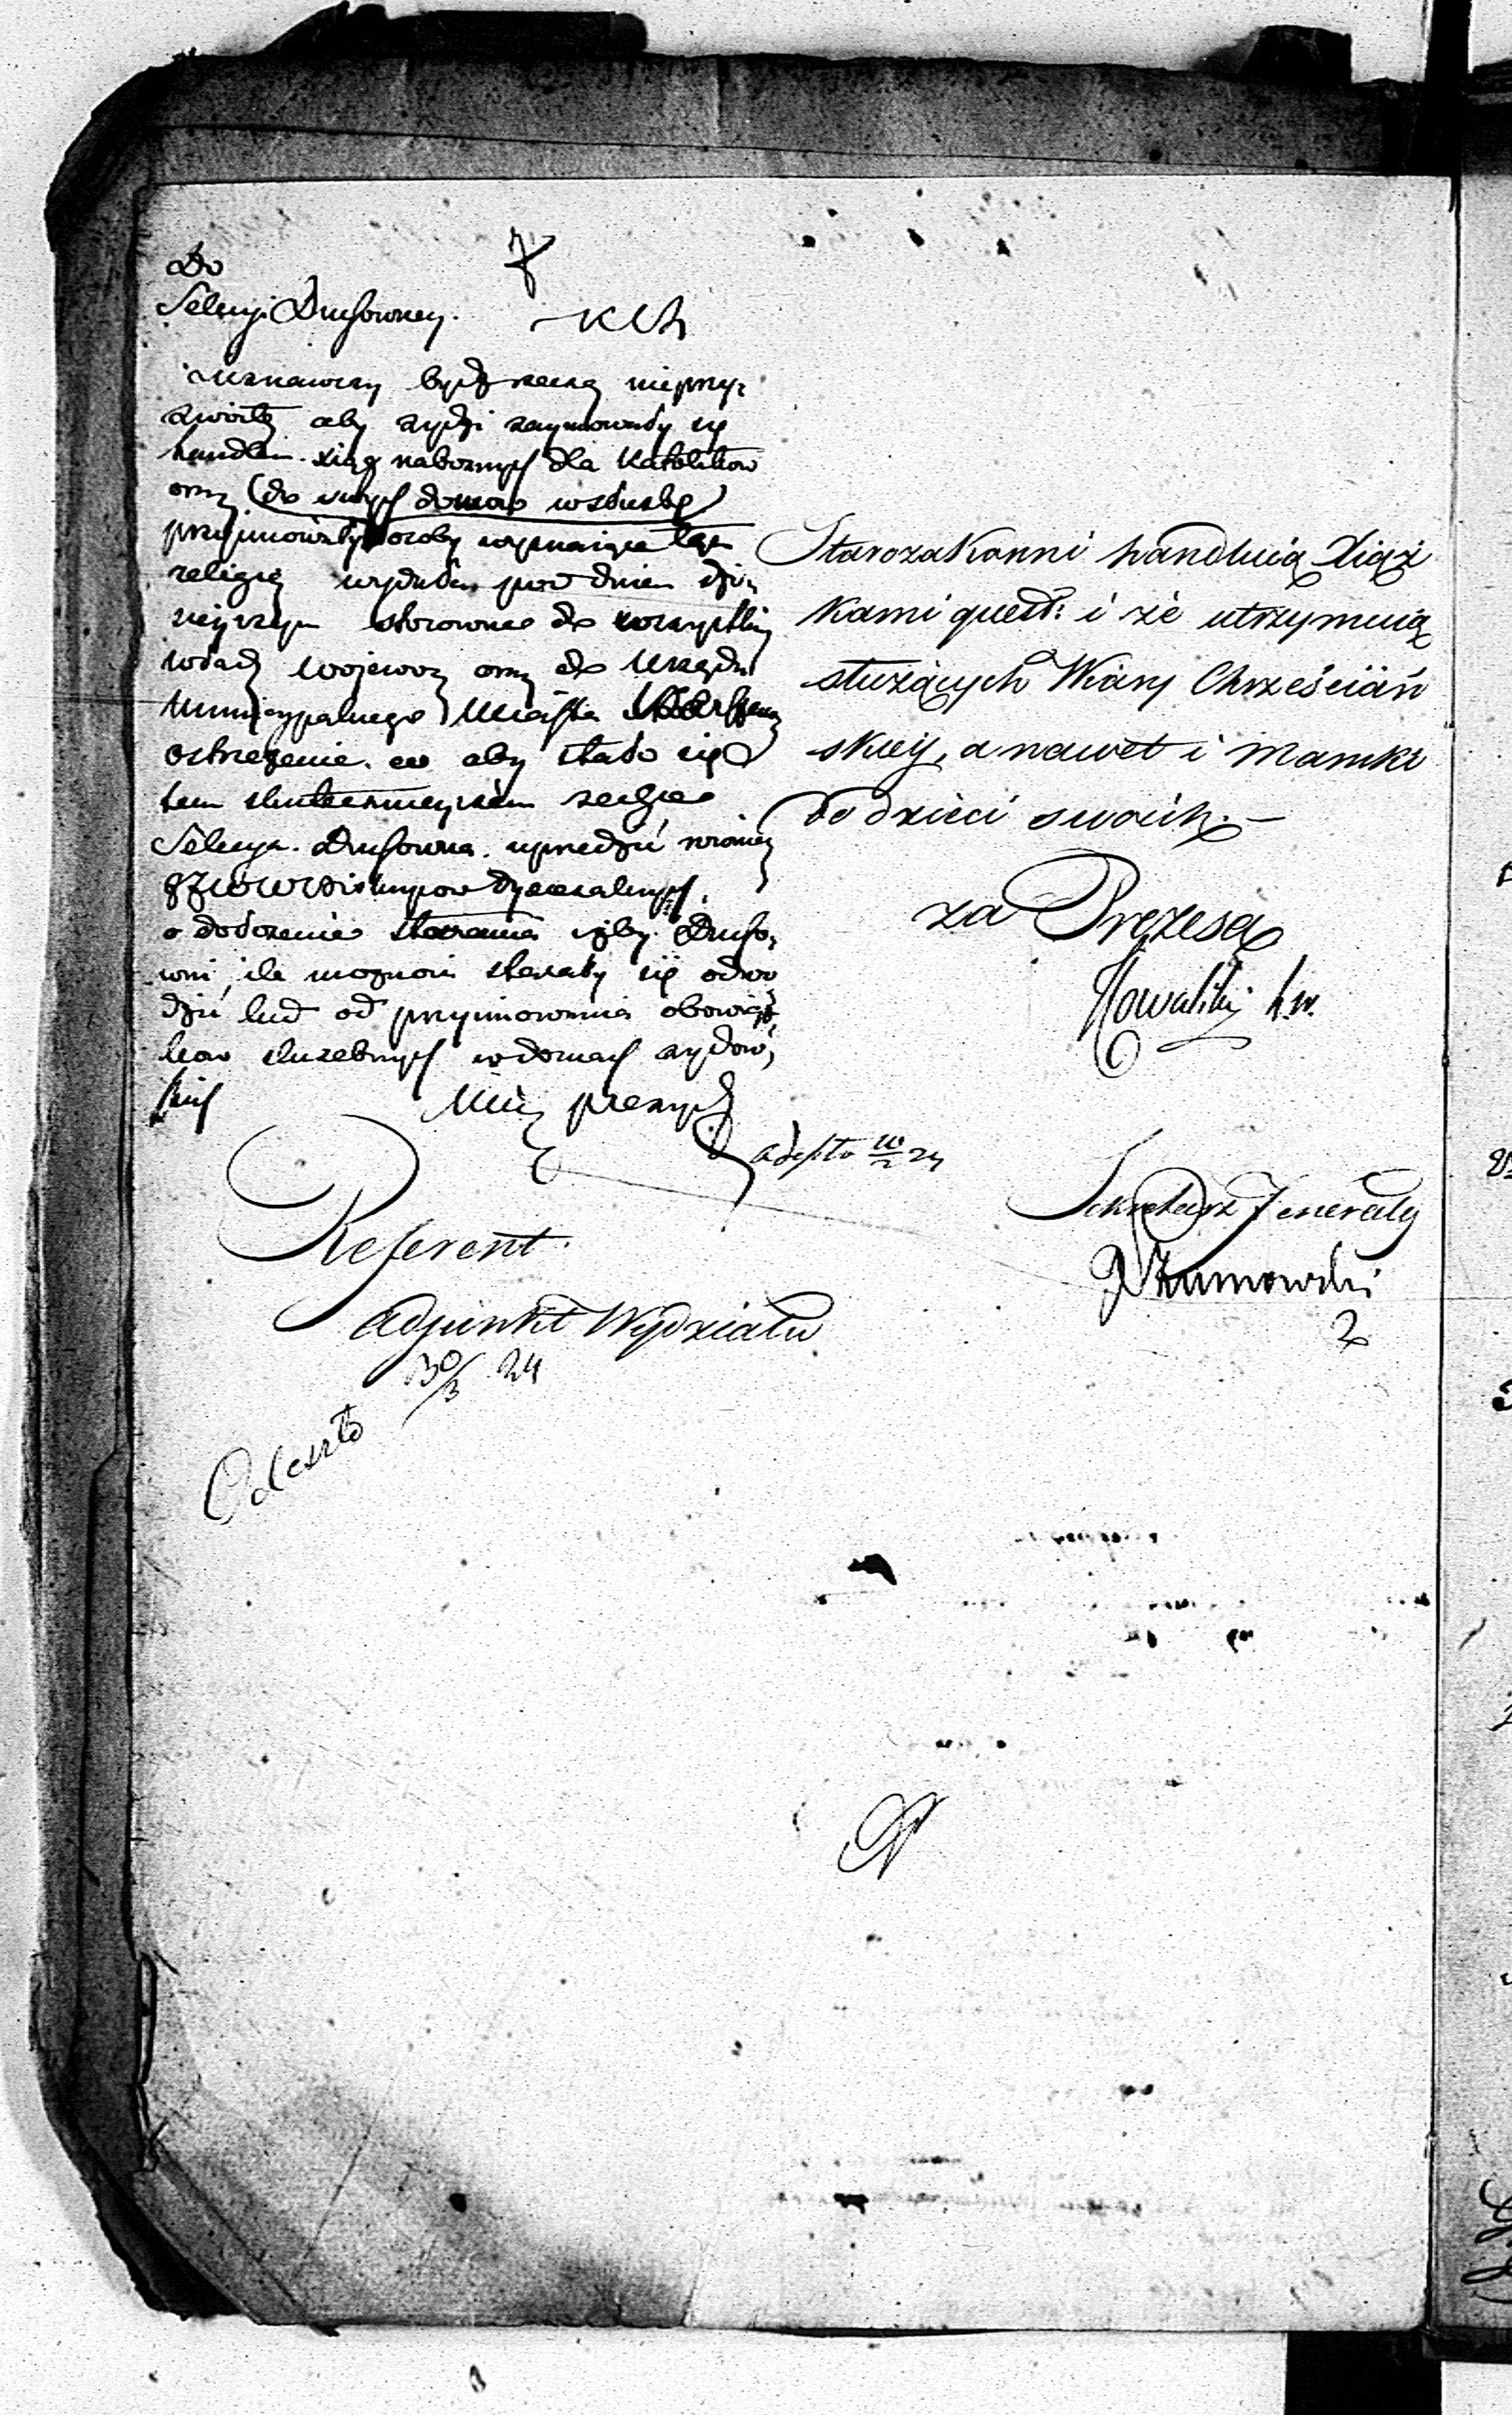 7
Do
Sekcyi Duchowney.
Uznawszy bydź rzeczą nieprzy-
zwoitą aby żydzi zaymowały się
handlem xiąg nabożnych dla Katolików
oraz (do swych domów w służbę)
przyimowały osoby wyznaiące tąż
religię wydałem pod dniem dzi-
sieyszym stosowne do wszystkich
władz wojewodz. oraz do Urzędu
Municypalnego Miasta Warszawy
ostrzeżenie. aby stało się
tem skutecznieyszem zechce
Sekcya Duchowna uprzedzić również
Biskupów Dyecezalnych,
o dołożenie starania iżby Ducho-
wni, ile możności starały się odwo-
dzić lud od przyimowania obowiąz-
ków służebnych w domach żydow-
skich
Min. prezyd.
30/3 24
Referent
Adjunkt Wydziału
Odeszło
Starozakonni handluią Xiąż
kami quest: i że utrzymuią
służących Wiary Chrześciań
skiey, a nawet i Mamki
do dzieci swoich. –
za Prezesa
Kowalski
Sekretarz Jeneralny
Szumowski